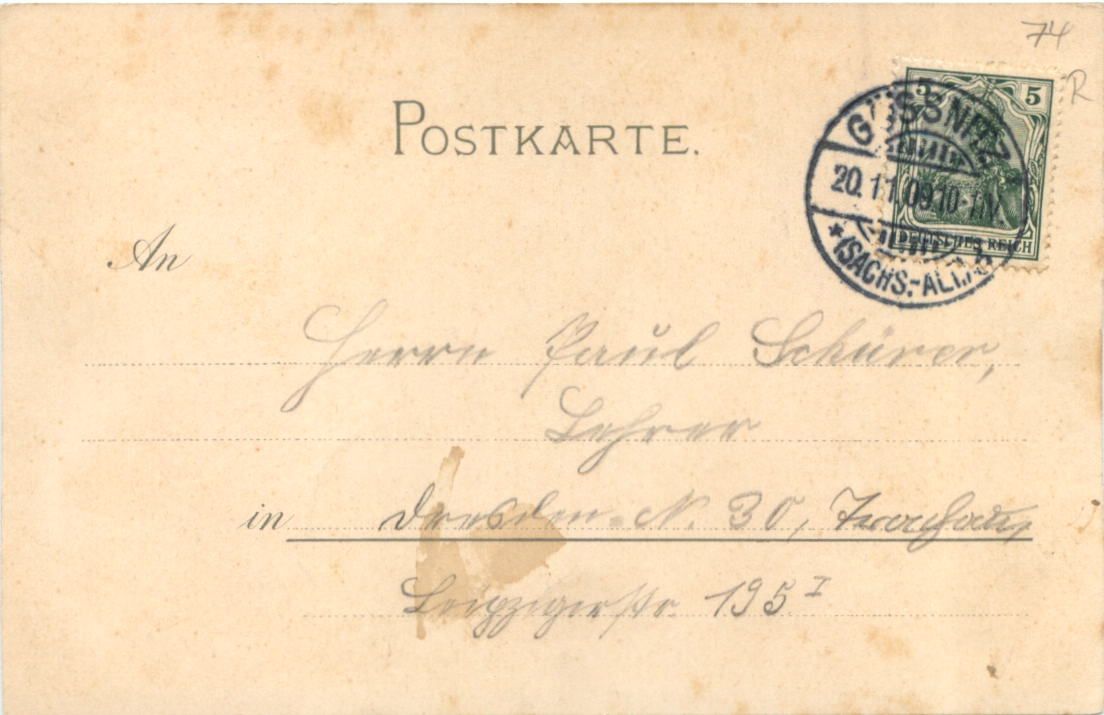 74
R
5 5
POSTKARTE.
GÖSSNITZ
20.11.09.10-11V.
*(SACHS.-ALT.) b
DEUTSCHES REICH
An
Herrn Paul Schürer,
Lehrer
in Dresden-N. 30, Trachau,
Leipzigerstr. 195 I